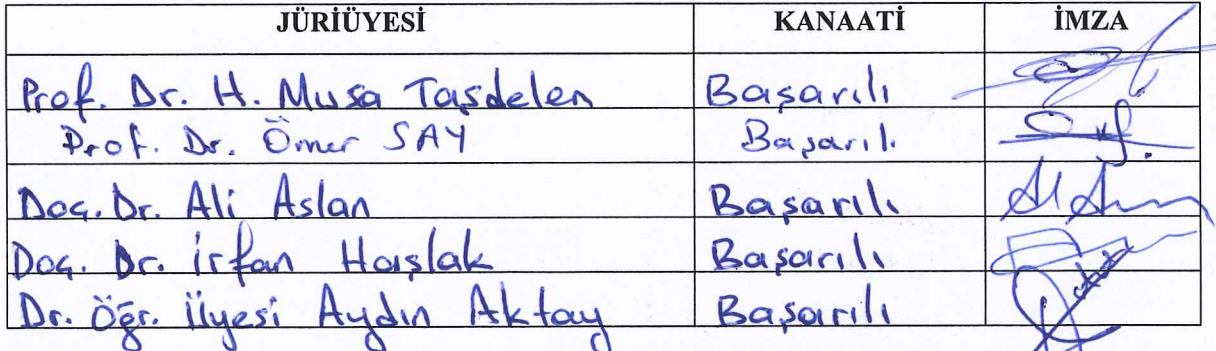 JÜRİÜYESİ KANAATİ İMZA
Prof. Dr. H. Musa Taşdelen Başarılı
Prof. Dr. Ömer SAY Başarılı
Doç. Dr. Ali Aslan Başarılı
Doç. Dr. İrfan Haşlak Başarılı
Dr. Öğr. Üyesi Aydın Aktay Başarılı